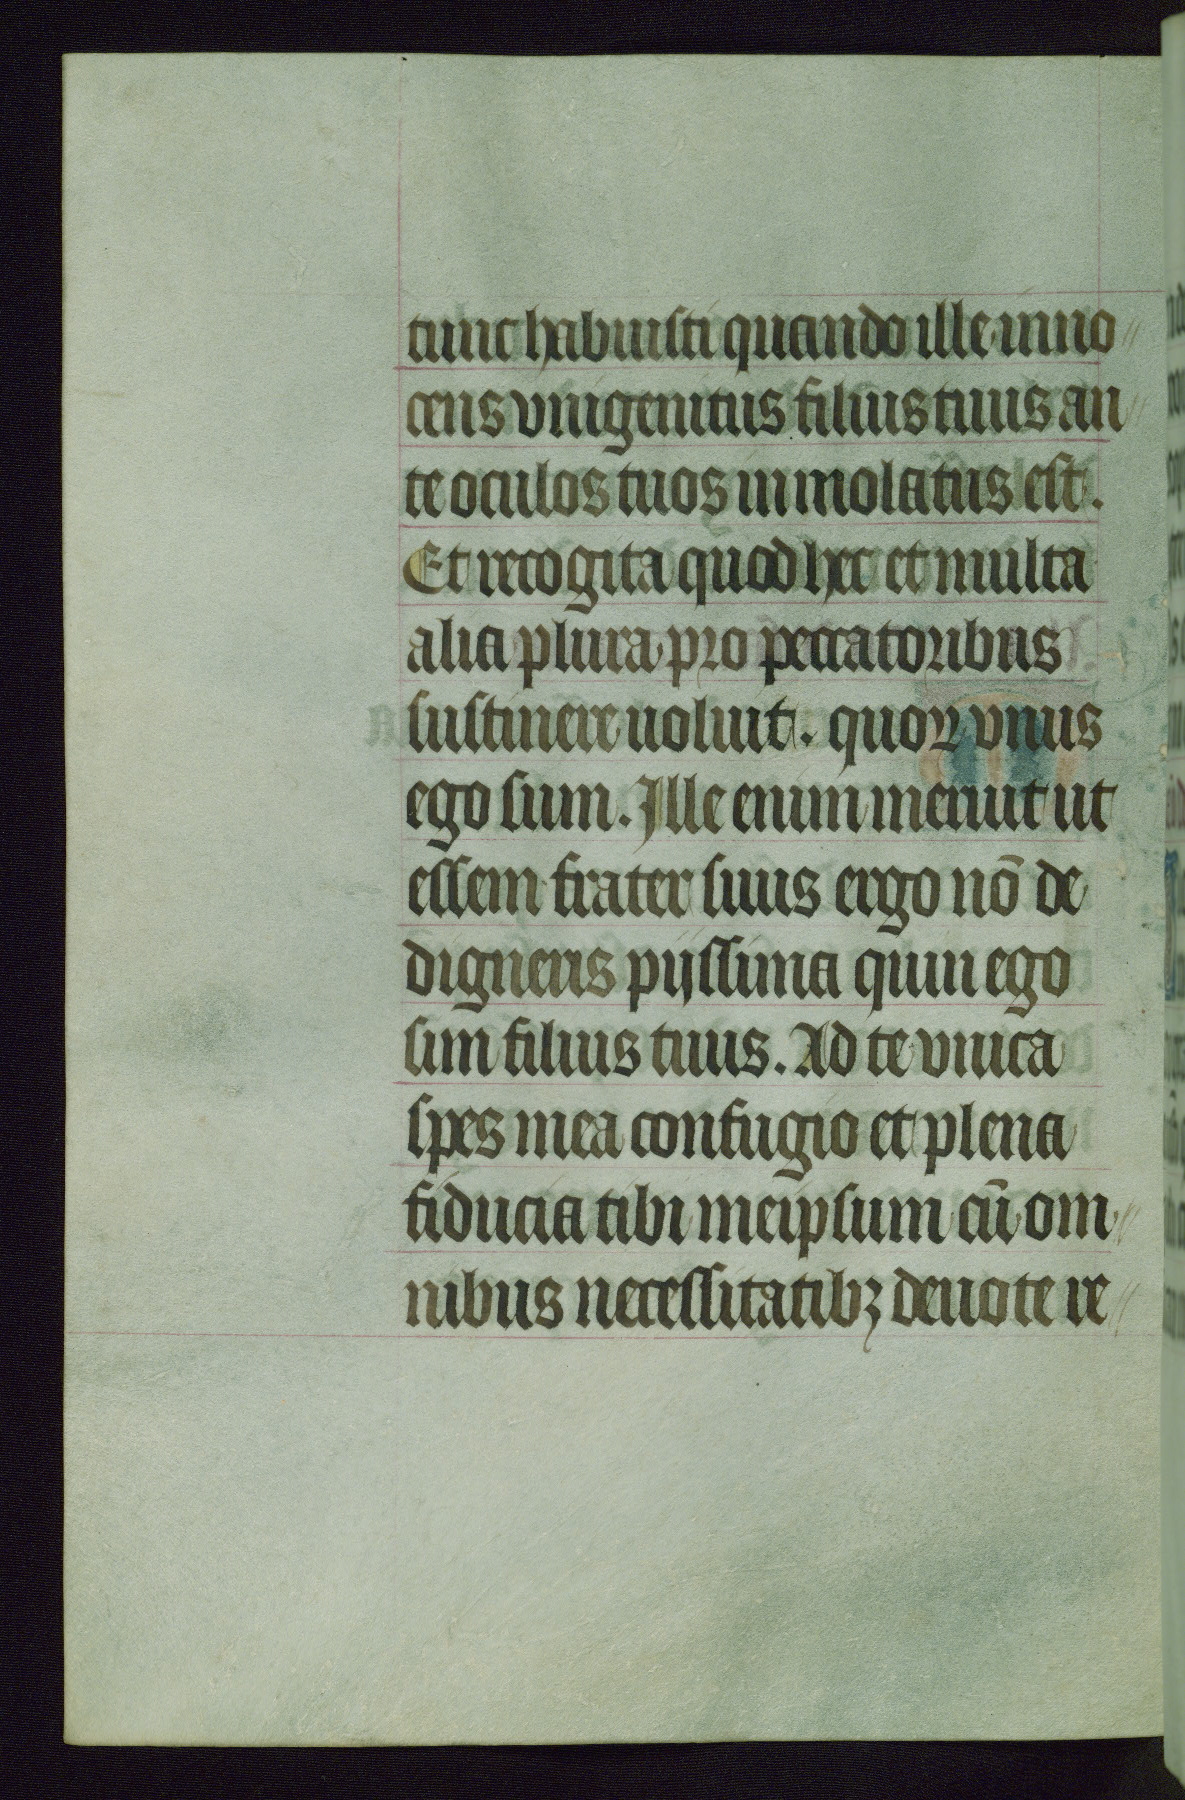 tunc habuisti quando ille inno//
cens vnigenitus filius tuus an//
te oculos tuos inmolatus est.
Et recogita quod hec et multa
alia plura pro peccatoribus
sustinere uoluit. quoꝝ vnus
ego sum. Ille enim meruit ut
essem frater suus ergo nō de
digneris pijssima quin ego
sim filius tuus. Ad te vnica
spes mea confugio et plena
fiducia tibi meipsum cū om//
nibus necessitatibꝫ deuote re//